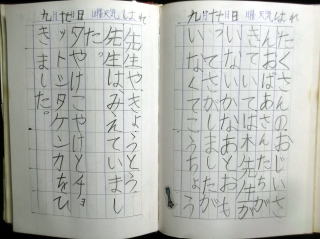 九月十七日 曜 天気 はれ
たくさんのおじいさ
んおばあさんたちが
いていては木先生が
いないかなあとおも
ってさがしましたが
いなくてこうちょう
九月十七日 曜 天気 はれ
先生や、きょうとう
先生はみえていまし
た。
夕やけこやけとチョ
ットシタケンカをひ
きました。